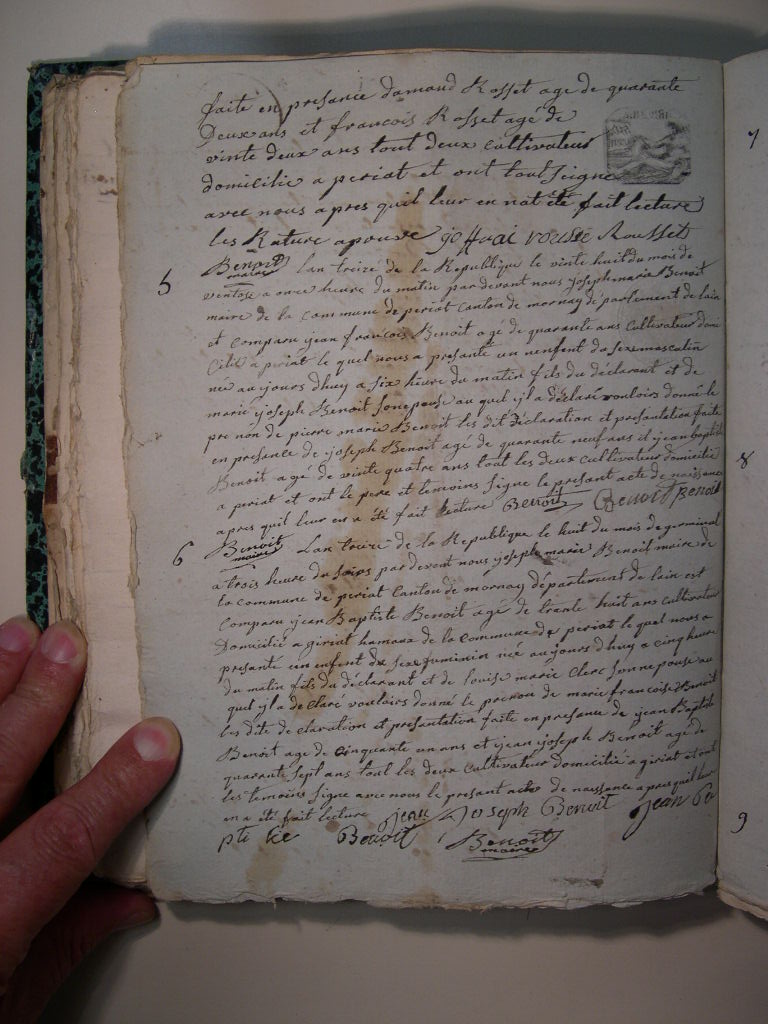 faite en presance damaud Rosset age de quarante
Deux ans et francois Rosset agé de
vinte deux ans tout deux cultivateur
domicilie a periat et ont tout signe
avec nous apres quil leur en nat été fait lecture
les Rature aprouve rousse Rousset
Benoit
maire
5
lan treizé de la Republique le vinte huit du mois de
ventose a onze heure du matin par devant nous joseph marie Benoit
maire de la commune de periat canton de mornay departement de lain
et comparu jean francois Benoit age de quarante ans cultivateur domi
cilié a periat le quel nous a presante un nenfent du sexe masculin
née au jours dhuy a six heure du matin fils du déclarant et de
marie joseph Benoit son epouse au quel il a déclaré vouloirs donné le
pre nón de pierre marie Benoit les dit déclaration et presantation faite
en presance de joseph Benoit agé de quarante neuf ans et jean baptiste
Benoit agé de vinte quatre ans tout les deux cultivateur domicilié
a periat et ont le pere et temoins signe le presant acte de naissance
apres quil leur en a été fait lecture Benoit Benoit Benoit
Benoit
maire
6
Lan treize de la Republique le huit du mois de germinal
a trois heure du soirs par devent nous joseph marie Benoit maire de
la commune de periat Canton de mornay département de lain est
comparu jean Baptiste Benoit age de trante huit ans cultivateur
Domicilié a giriat hamaux de la commune de periat le quel nous a
presante un enfent du sexe feminin née au jours dhuy a cinq heure
du matin fils du déclarant et de louise marie Clerc sonne pouse au
quel il a declaré vouloirs donné le prenon de marie francoise Benoit
les dite declaration et presantation faite en presance de jean Baptiste
Benoit age de cinquante un ans et jean joseph Benoit agé de
quarante sept ans tout les deux cultivateur domicilié a giriat et ont
les temoins signe avec nous le presant acte de naissance apres quil leur
en a été fait lecture jean joseph Benoit jean Ba
pti ste Benoit Benoit
maire
7
8
9